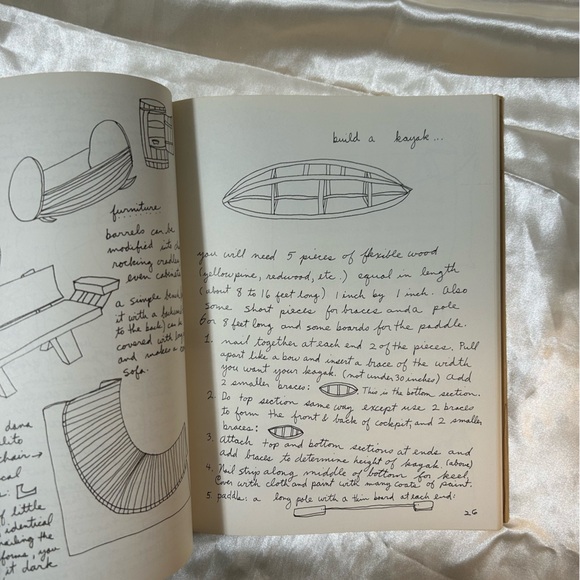 furniture
barrels can be
modified into
rocking cradles
even cabinets
a simple bench
it with a
to the back) can be
covered with
and makes a
sofa.
dana
chair→
of little
identical
making the
forms, you
it dark
build a kayak...
you will need 5 pieces of flexible wood
(yellow pine, redwood, etc.) equal in length
(about 8 to 16 feet long) 1 inch by 1 inch. Also
some short pieces for braces and a pole
6 or 8 feet long and some boards for the paddle.
1. nail together at each end 2 of the pieces. Pull
apart like a bow and insert a brace of the width
you want your kayak. (not under 30 inches) add
2 smaller braces: This is the bottom section.
2. Do top section same way except use 2 braces
to form the front & back of cockpit, and 2 smaller
braces:
3. Attach top and bottom sections at ends and
add braces to determine height of kayak (above)
4. Nail strip along middle of bottom for keel
Cover with cloth and paint with many coats of paint.
5. paddle: a long pole with a thin board at each end:
26